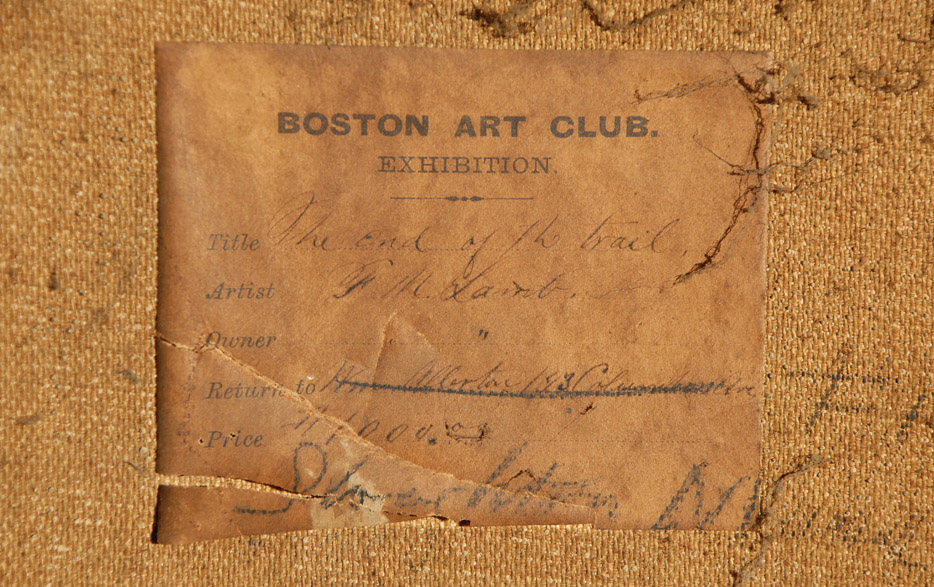 BOSTON ART CLUB.
EXHIBITION.
Title The end of th trail.
Artist F. M. Lamb.
Owner "
Return to Wm Allerton 133 Columbus Ave
Price $1000.00
Stoughton M